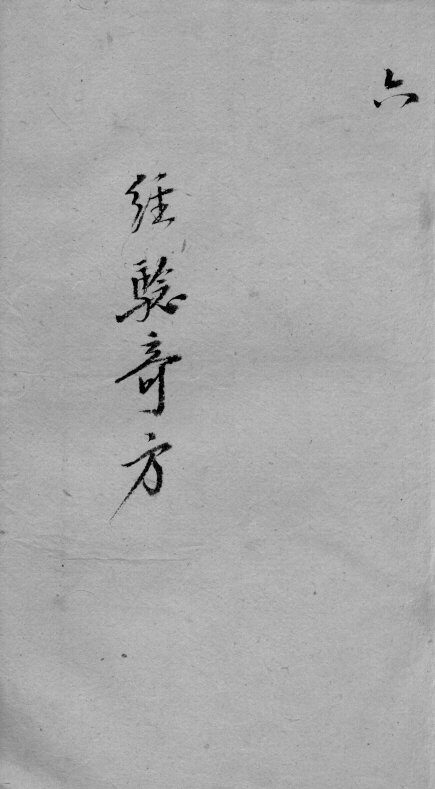 六
經驗奇方